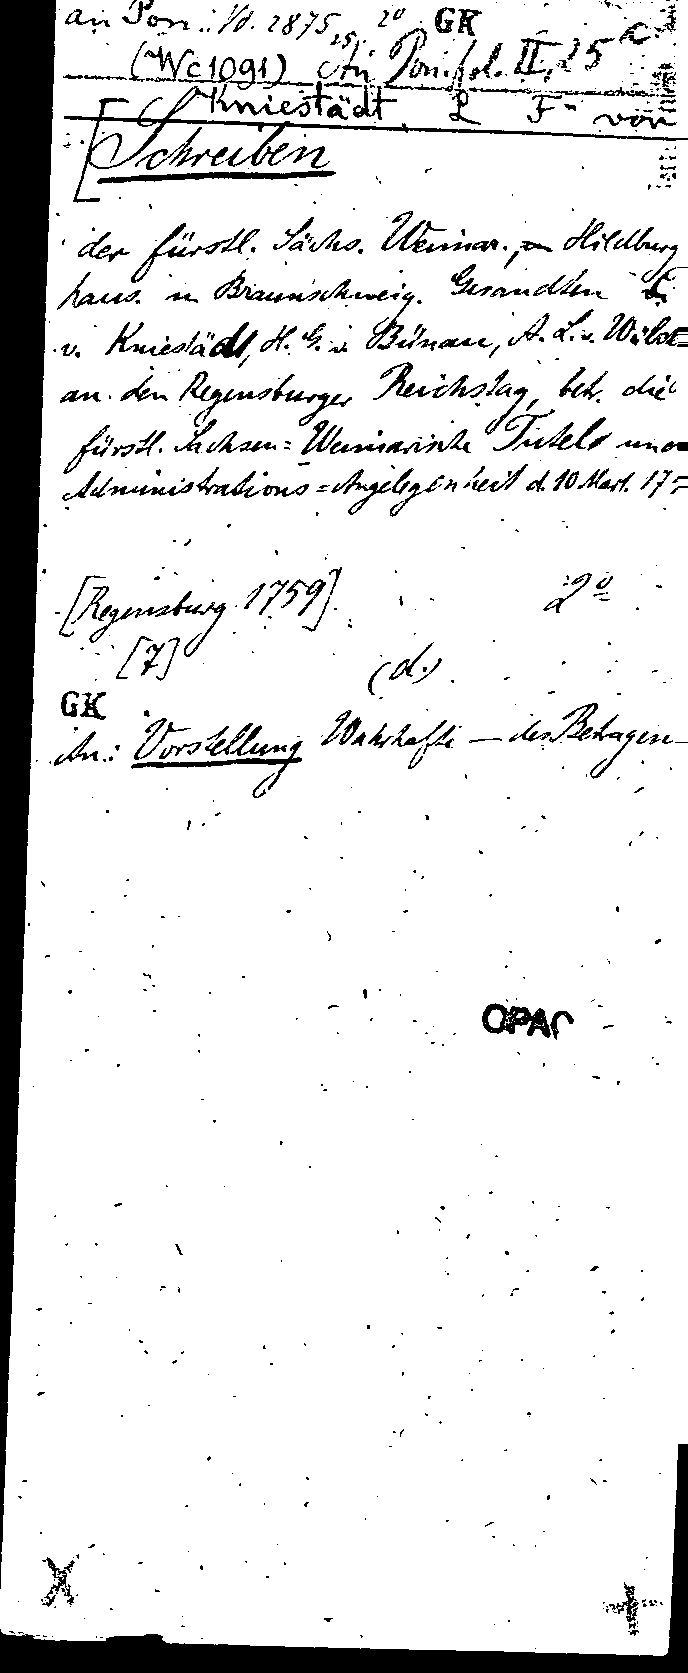 an Pon.: Vd. 2875, 20 GK
25.
(Wc1091) An Pon. fol. II, 25 c
Kniestädt, L F von
[Schreiben
der fürstl. Sächs. Weimar., Hildburg
haus. u Braunschweig. Gesandten
v. Kniestädt, H. G. v. Bünau, A. L. v.
an den Regensburger Reichstag, betr. die
fürstl. Sachsen=Weimarische Tutels und
Administrations=Angelegenheit d. 10 Mart. 17=
[Regensburg 1759] 2º
[7] (d.)
GK
An: Vorstellung Wahrhafte — des Betragen—
OPAC
X +